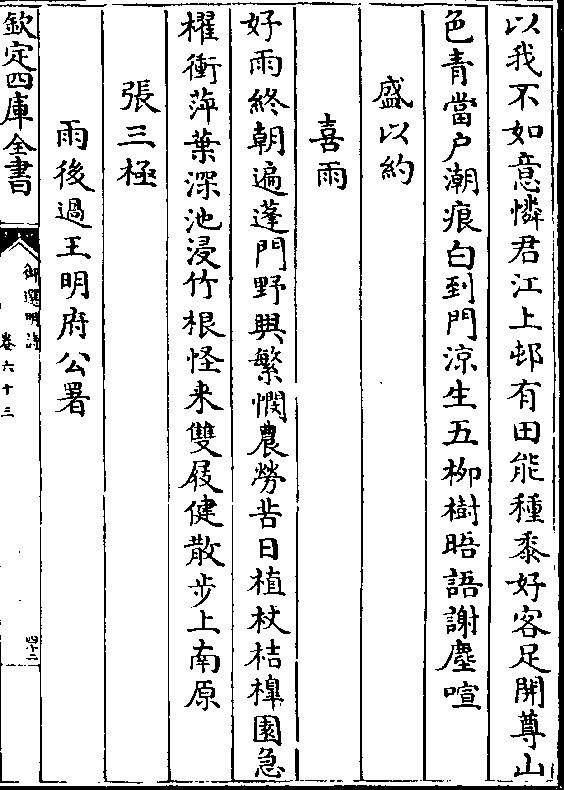 以我不如意憐君江上邨有田能種黍好客足開尊山
色青當户潮痕白到門涼生五柳樹晤語謝塵喧
盛以約
喜雨
好雨終朝遍蓬門野興繁憫農勞昔日植杖桔橰園急
櫂衝萍葉深池浸竹根怪来雙屐健散步上南原
張三極
雨後過王明府公署
欽定四庫全書
御選明詩
卷六十三
四十二